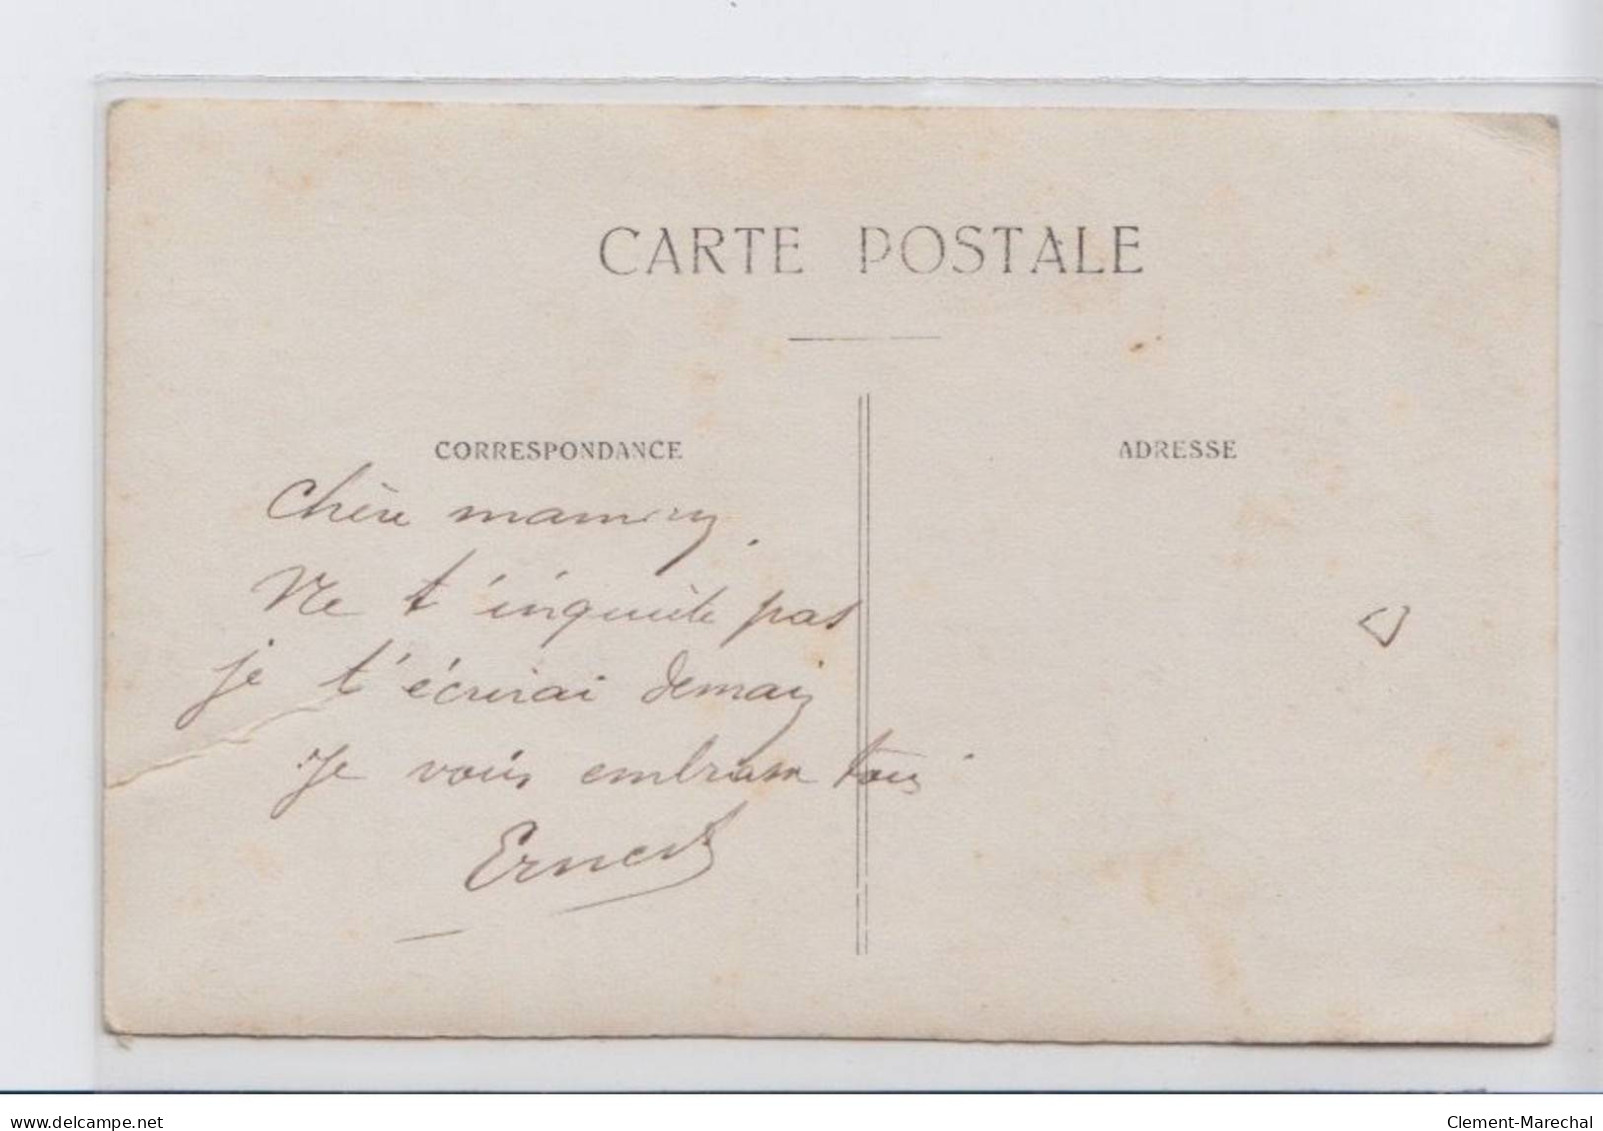 CARTE POSTALE
CORRESPONDANCE
ADRESSE
Chère maman.
Ne t'inquiète pas
je t'écrirai demain
Je vous embrasse tous.
Ernest
delcampe.net
Clement-Marechal